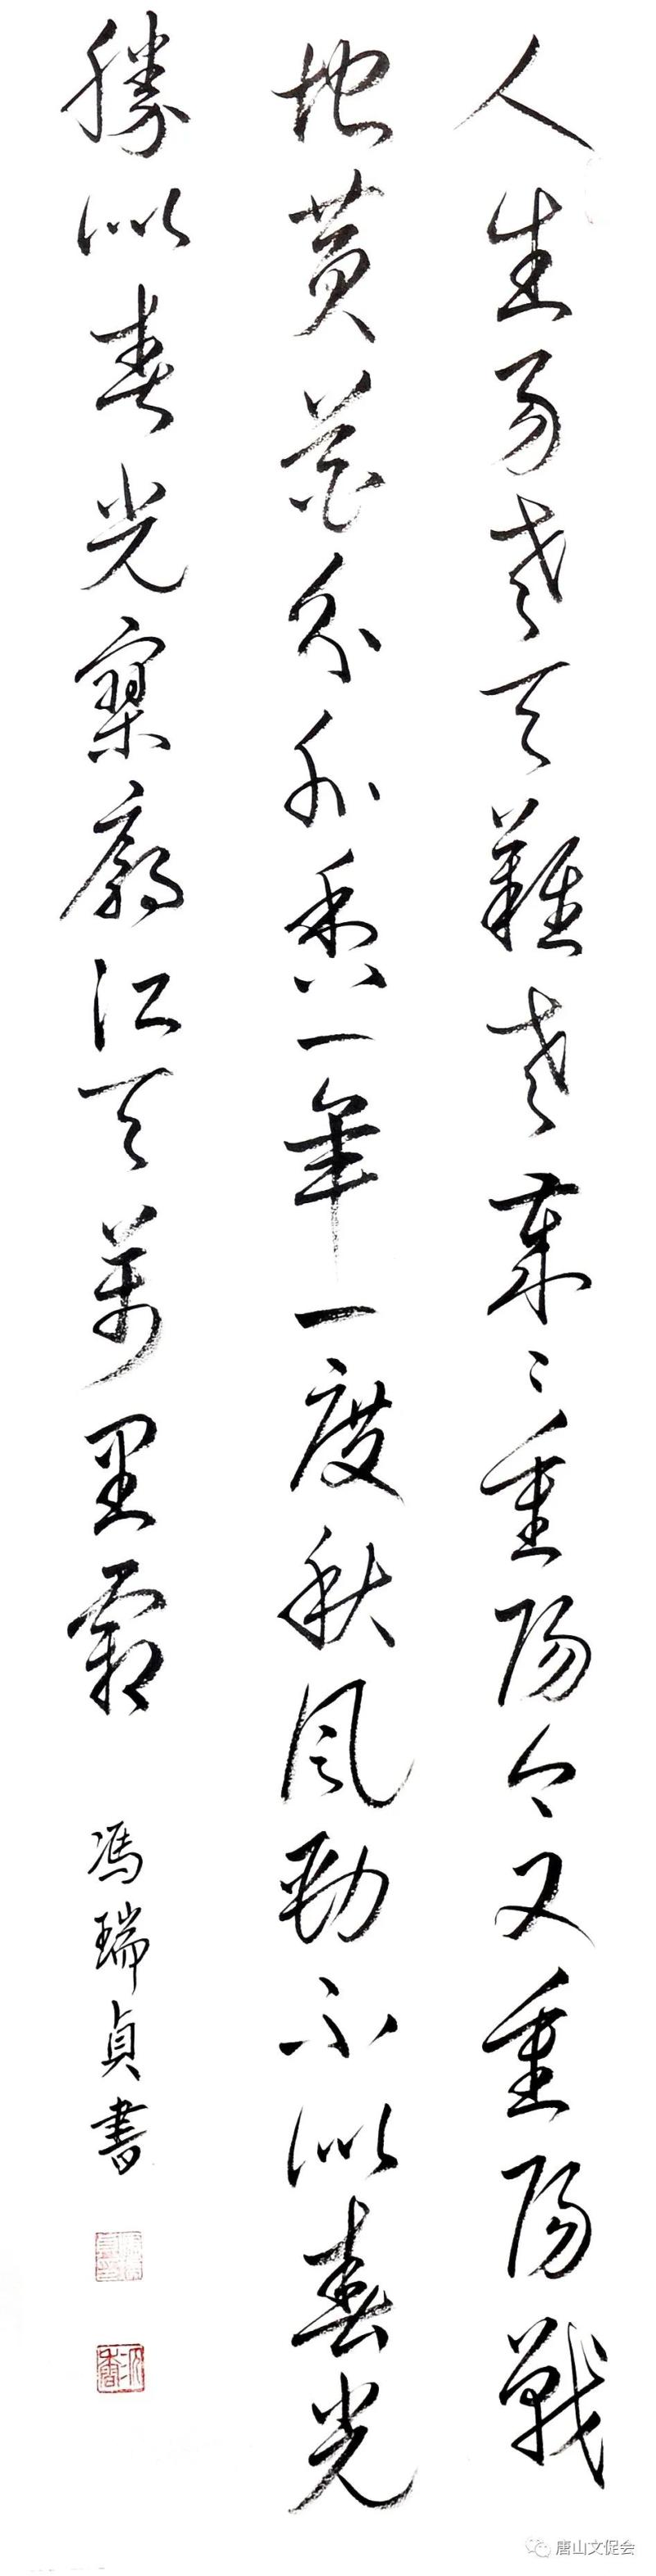 人生易老天難老歲々重陽今又重陽戰
地黄花分外香一年一度秋風勁不似春光
勝似春光寥廓江天萬里霜
馮瑞貞書
唐山文促会